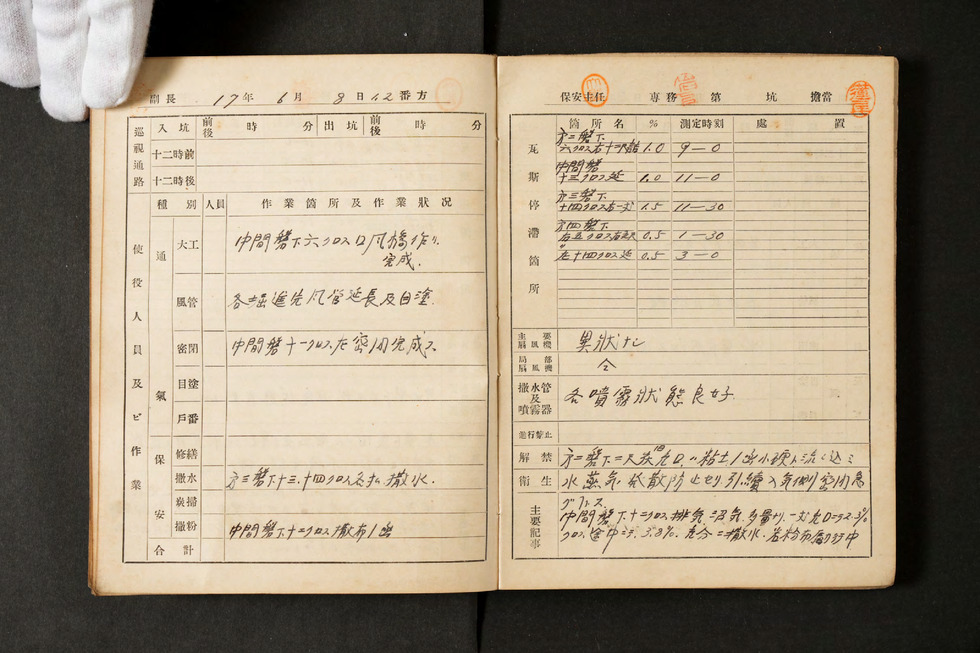 副長 17年 6月 8日 12番方
巡視通路 入坑 前後 時 分 出坑 前後 時 分
十二時前
十二時後
使役人員及ビ作業
種別 人員 作業箇所及作業狀況
通氣
大工 中間盤下六クロス口風橋作り
完成.
風管 各掘進先風管延長及白塗.
密閉 中間盤十一クロス左密閉完成ス.
目塗
戶番
保安
修繕
撒水 方三盤下十三.十四クロス 撒水.
炭掃
撒粉 中間盤下十二クロス撒布1出
合計
保安主任 專務 第 坑 擔當
瓦斯停滯箇所
箇所名 % 測定時刻 處置
方二盤下
六クロス右十二 1.0 9—0
中間盤
十三クロス延 1.0 11—0
方三盤下
十四クロス右一 1.5 11—30
方四盤下
右五クロス右 0.5 1—30
〃左十四クロス延 0.5 3—0
主要扇風機 異狀ナシ
局部扇風機 仝
撒水管及噴霧器 各噴霧狀態良好.
進行禁止
解禁 方二盤下二尺 粘土1出 流シ込ミ
衛生 水蒸気 散防止セリ.引續入気側密閉急
主要記事
中間盤下十三クロス排気 沼気多量
クロス延中 3.8%. 充分ニ撒水.岩粉布